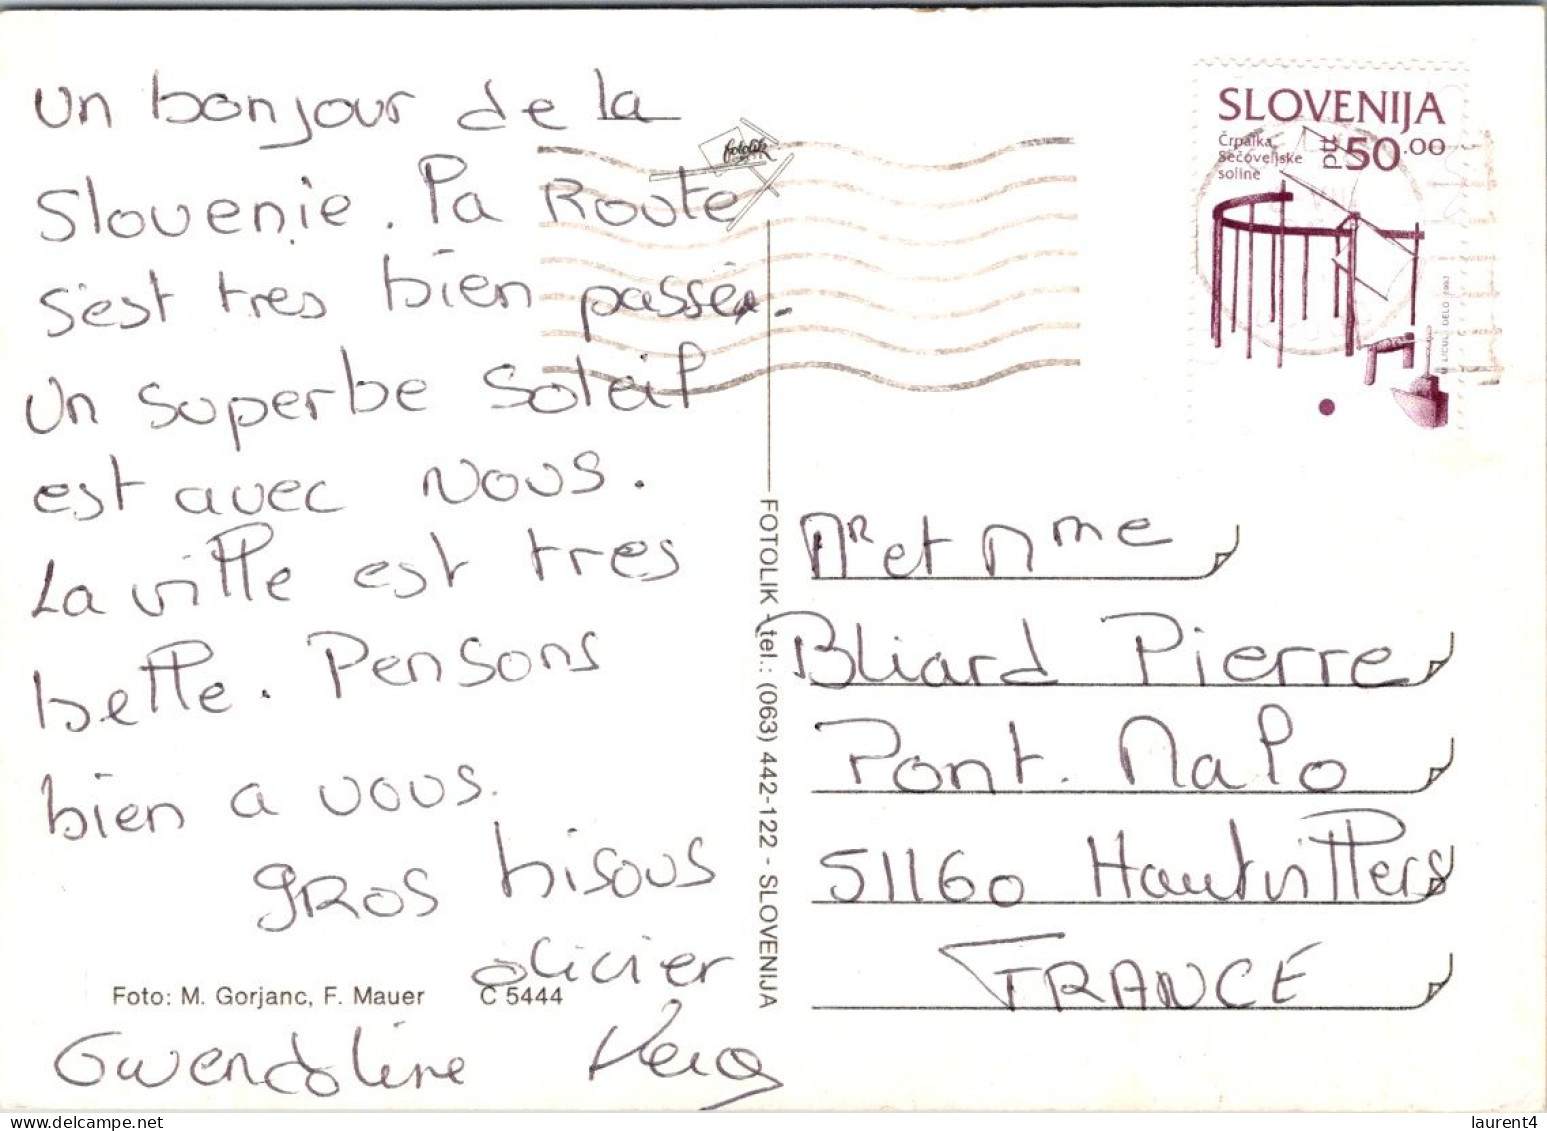 un bonjour de la
Slovenie. la Route
s'est tres bien passée.
un superbe Soleil
est avec nous.
La ville est tres
belle. Pensons
bien a vous.
gros bisous
olivier
Gwendoline
fotolik
Foto: M. Gorjanc, F. Mauer C 5444
FOTOLIK - tel.: (063) 442-122 - SLOVENIJA
SLOVENIJA
Črpalka,
Sečoveljske
soline
50.00
DELO 1993
Mr et Mme
Bliard Pierre
Pont. Malo
51160 Hautvillers
FRANCE
laurent4